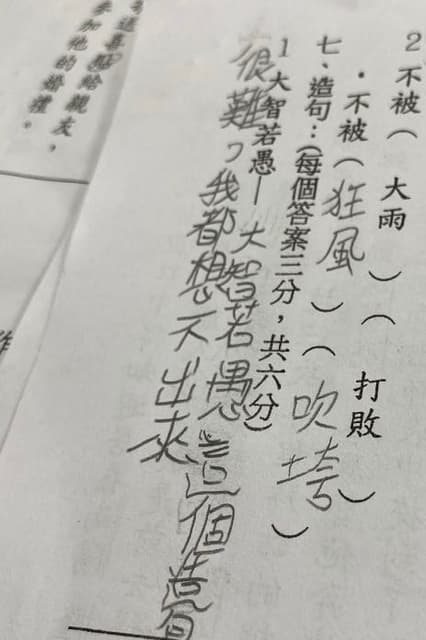 2 不被( 大雨 )( 打敗 )
・不被(狂風)(吹垮)
七、造句:(每個答案三分,共六分)
1 大智若愚—大智若愚這個造句
很難,我都想不出來
給親友,
參加他的婚禮。